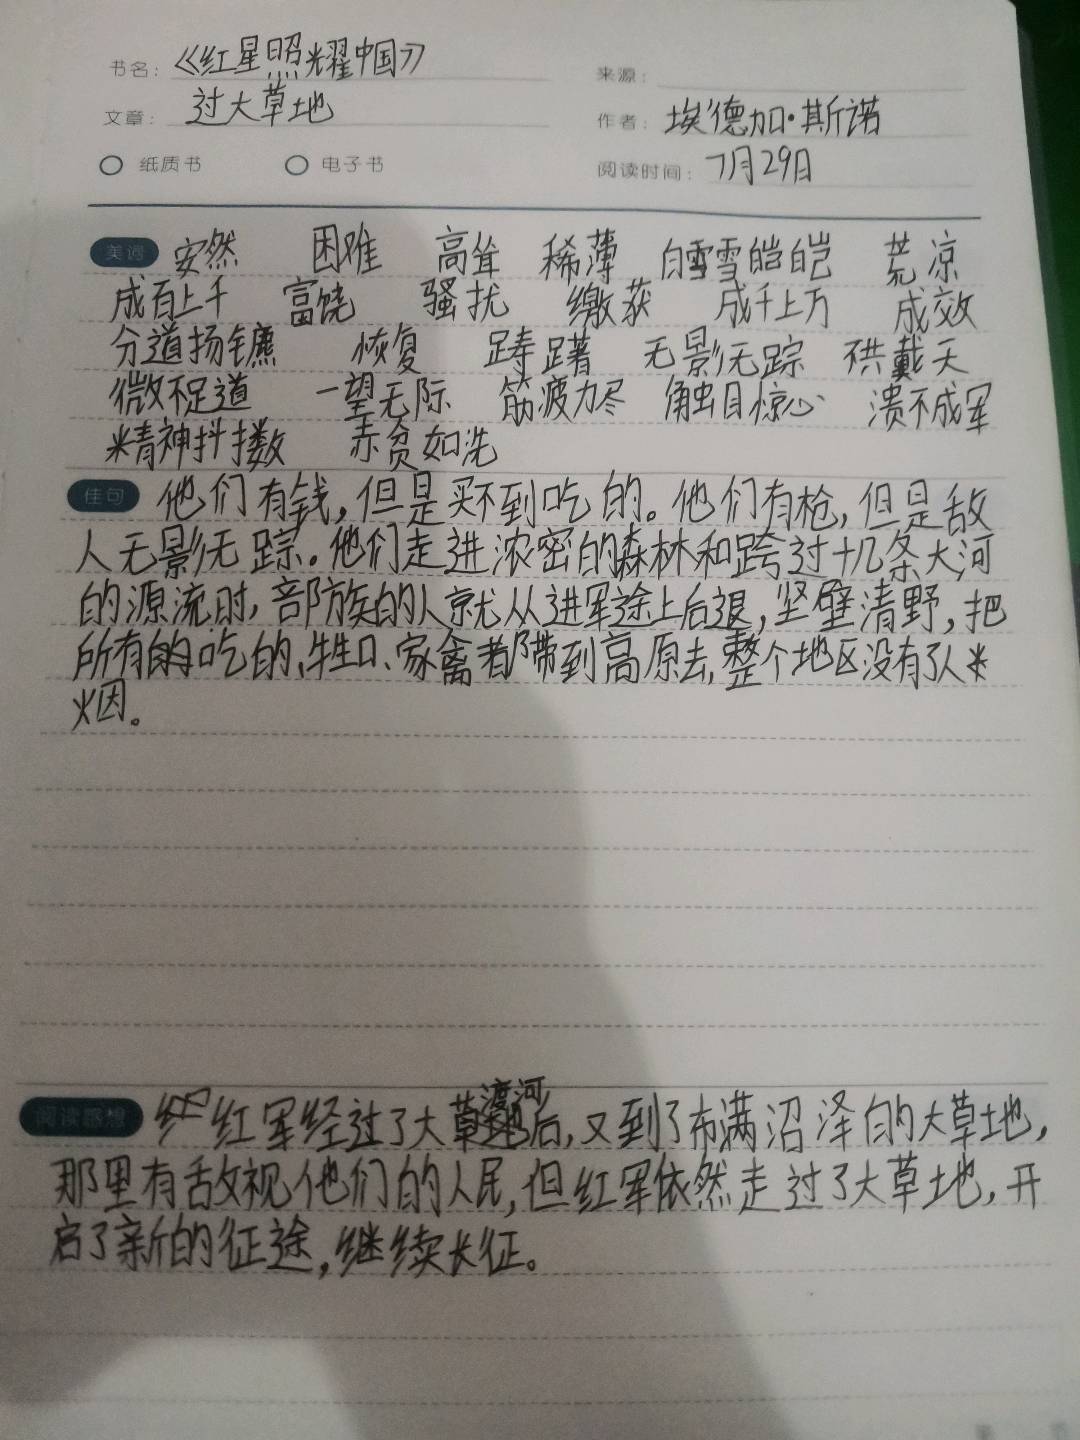 书名：《红星照耀中国》 来源：
文章：过大草地 作者：埃德加·斯诺
纸质书 电子书 阅读时间：7月29日
美词 安然 困难 高耸 稀薄 白雪雪皑皑 荒凉
成百上千 富饶 骚扰 缴获 成千上万 成效
分道扬镳 恢复 踌躇 无影无踪 不共戴天
微不足道 一望无际 筋疲力尽 触目惊心 溃不成军
精神抖擞 赤贫如洗
佳句 他们有钱，但是买不到吃的。他们有枪，但是敌
人无影无踪。他们走进浓密的森林和跨过十几条大河
的源流时，部族的人就从进军途上后退，坚壁清野，把
所有的吃的、牲口、家禽都带到高原去，整个地区没有了人
烟。
阅读感想 红军经过了大渡河后，又到了布满沼泽的大草地，
那里有敌视他们的人民，但红军依然走过了大草地，开
启了新的征途，继续长征。